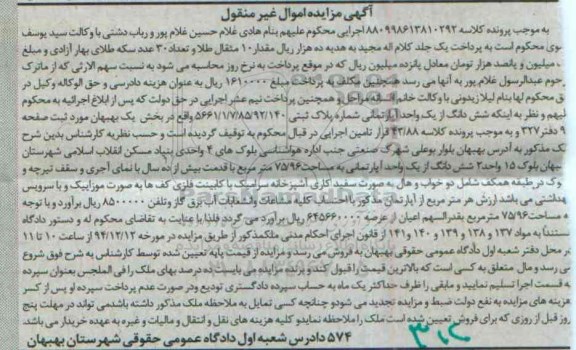 آگهی مزایده اموال غیر منقول
به موجب پرونده کلاسه ۸۸۰۹۹۸۶۱۳۸۱۰۲۹۲ اجرایی محکوم علیهم بنام هادی غلام حسین غلام پور و رباب دشتی با وکالت سید یوسف
موی محکوم است به پرداخت یک جلد کلام اله مجید به هدیه ده هزار ریال مقدار ۱۰ مثقال طلا و تعداد ۳۰ عدد سکه طلای بهار آزادی و مبلغ
میلیون و پانصد هزار تومان معادل پانزده میلیون ریال که در موقع پرداخت به نرخ روز محاسبه می شود به نسبت سهم الارثی که از ماترک
حوم عبدالرسول غلام پور به آنها می رسد همچنین مکلف به پرداخت مبلغ ۱۶۱۰۰۰۰ ریال به عنوان هزینه دادرسی و حق الوکاله وکیل در
ق محکوم لها بنام لیلا زیدونی با وکالت خانم افسانه مراحل و همچنین پرداخت نیم عشر اجرایی در حق دولت که پس از ابلاغ اجرائیه به محکوم
لیهم و نظر به اینکه شش دانگ از یک واحد آپارتمانی شماره پلاک ثبتی ۵۶۶۱/۱/۷/۸۵/۹۲/۱۴۰ واقع در بخش یک بهبهان مورد ثبت صفحه
۹ دفتر ۳۲۷ و به موجب پرونده کلاسه ۴۳/۸۸ قرار تامین اجرایی در قبال محکوم به توقیف گردیده است و حسب نظریه کارشناس بدین شرح
ک مذکور به آدرس بهبهان بلوار بوعلی شهرک صنعتی جنب اداره هواشناسی بلوک های ۴ واحدی بنیاد مسکن انقلاب اسلامی شهرستان
بهبهان بلوک ۱۵ واحد ۳ شش دانگ از یک واحد آپارتمانی به مساحت ۷۵/۹۶ متر مربع با قدمت بیش از ده سال با نمای آجری و سقف تیرچه و
وک در طبقه همکف شامل دو خواب و هال به صورت سفید کاری آشپزخانه سرامیک با کابینت فلزی کف ها به صورت موزاییک و با سرویس
هداشتی می باشد ارزش هر متر مربع از آپارتمان مذکور با احتساب کلیه متعلقات و انشعابات آب برق گاز و تلفن ۸۵۰۰۰۰۰ ریال برآورد و با توجه
ه مساحت ۷۵/۹۶ مترمربع بقدرالسهم اعیان از عرصه ۶۴۵۶۶۰۰۰۰ ریال برآورد می گردد فلذا با عنایت به تقاضای محکوم له و دستور دادگاه
مستنداً به مواد ۱۳۷ و ۱۳۸ و ۱۳۹ و ۱۴۰ و ۱۴۱ از قانون اجرای احکام مدنی ملکمذکور از طریق مزایده در مورخه ۹۴/۱۲/۱۲ از ساعت ۱۰ تا ۱۱
در محل دفتر شعبه اول دادگاه عمومی حقوقی بهبهان به فروش می رسد و مزایده از قیمت پایه تعیین شده توسط کارشناس به شرح فوق شروع
ی رسد و مال متعلق به کسی است که بالاترین قیمت را قبول کند و برنده مزایده می بایست ده درصد بهای ملک را فی المجلس بعنوان سپرده
ه قسمت اجرا تسلیم نمایید و مابقی را ظرف حداکثر یک ماه به حساب سپرده دادگستری تودیع و در صورت عدم پرداخت سپرده او پس از کسر
هزینه های مزایده به نفع دولت ضبط و مزایده تجدید می شود و چنانچه کسی تمایل به ملاحظه ملک مذکور داشته باشد می تواند در مهلت پنج
روز قبل از روزی که برای فروش تعیین شده است ملک را ملاحظه نماید و کلیه هزینه های نقل و انتقال و مالیات و غیره به عهده خریدار می باشد.
۵۷۴ دادرس شعبه اول دادگاه عمومی حقوقی شهرستان بهبهان